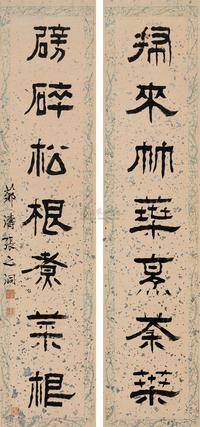 掃來竹葉烹茶葉
劈碎松根煮菜根
薌濤張之洞